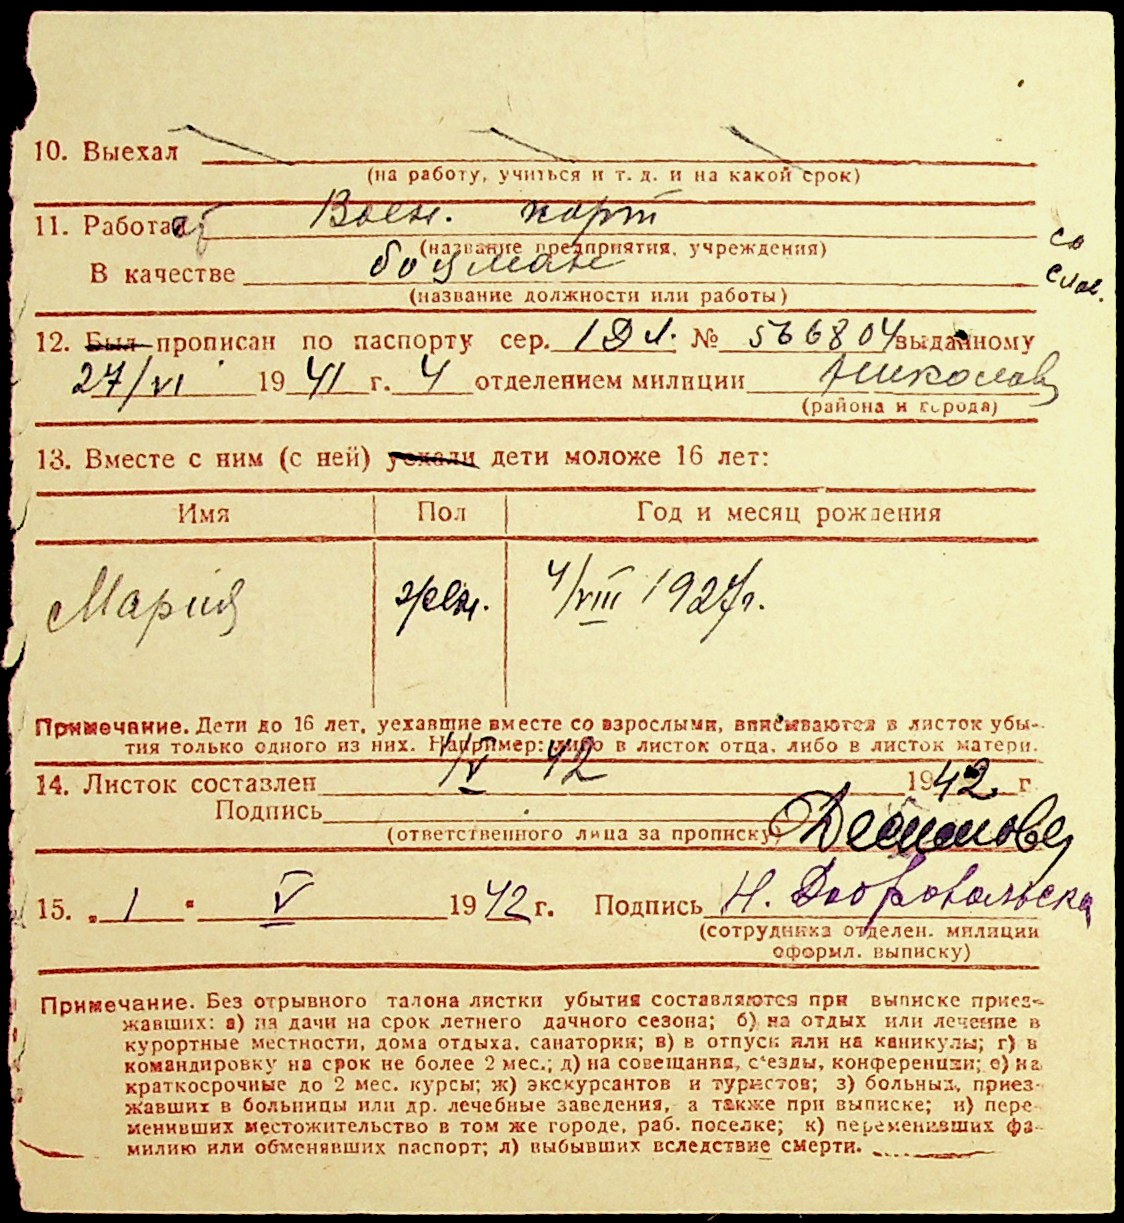 10. Выехал
(на работу, учиться и т. д. и на какой срок)
11. Работал Воен. порт
(название предприятия, учреждения)
со
слов.
В качестве боцман
(название должности или работы)
12. Был прописан по паспорту сер. 1 Дл. № 566804 выданному
27/VI 1941 г. 4 отделением милиции Николаев
(района и города)
13. Вместе с ним (с ней) уехали дети моложе 16 лет:
Имя Пол Год и месяц рождения
Мария жен. 4/VIII 1927г.
Примечание. Дети до 16 лет, уехавшие вместе со взрослыми, вписываются в листок убы-
тия только одного из них. Например: либо в листок отца, либо в листок матери.
14. Листок составлен 1/V 42 1942 г
Подпись
(ответственного лица за прописку)
15. „ 1 " V 1942 г. Подпись Н. Добровольска
(сотрудника отделен. милиции
оформл. выписку)
Примечание. Без отрывного талона листки убытия составляются при выписке приез-
жавших: а) на дачи на срок летнего дачного сезона; б) на отдых или лечение в
курортные местности, дома отдыха, санатории; в) в отпуск или на каникулы; г) в
командировку на срок не более 2 мес.; д) на совещания, с'езды, конференции; е) на
краткосрочные до 2 мес. курсы; ж) экскурсантов и туристов; з) больных, приез-
жавших в больницы или др. лечебные заведения, а также при выписке; и) пере-
менивших местожительство в том же городе, раб. поселке; к) переменивших фа-
милию или обменявших паспорт; л) выбывших вследствие смерти.